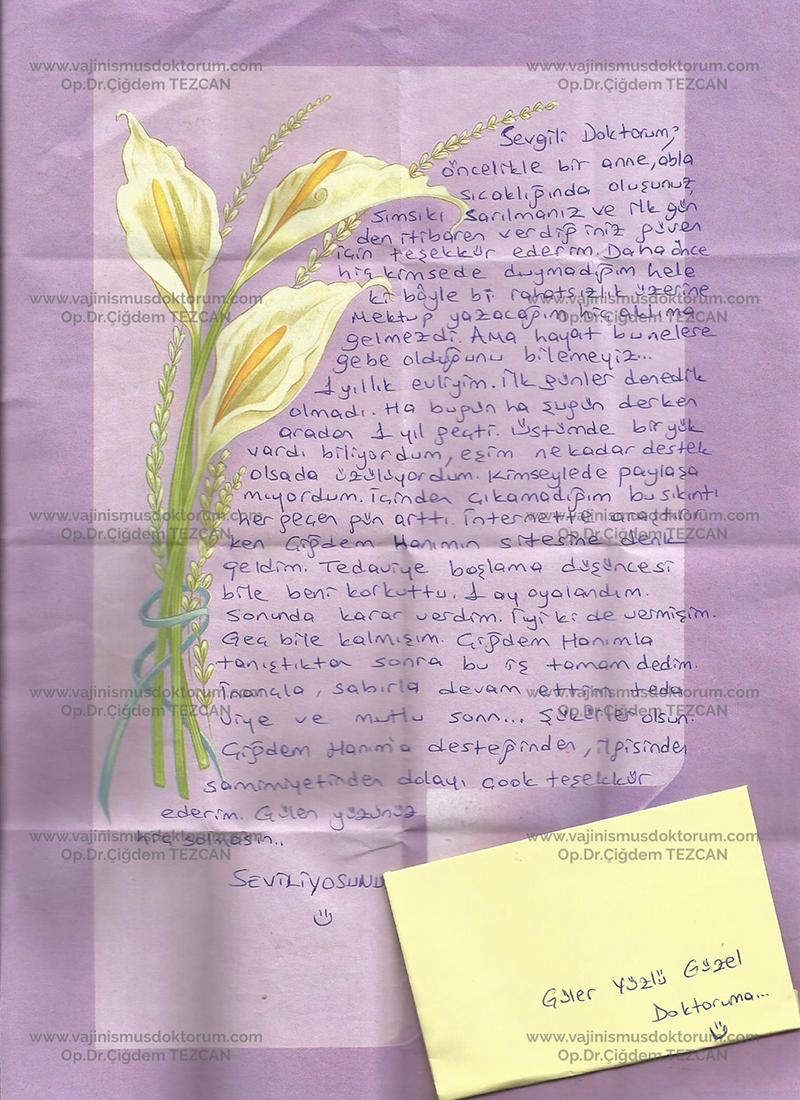 www.vajinismusdoktorum.com www.vajinismusdoktorum.com
Op.Dr.Çiğdem TEZCAN Op.Dr.Çiğdem TEZCAN
Sevgili Doktorum;
öncelikle bir anne, abla
sıcaklığında oluşunuz,
sımsıkı sarılmanız ve ilk gün
den itibaren verdiğiniz güven
için teşekkür ederim. Daha önce
hiç kimsede duymadığım hele
ki böyle bi rahatsızlık üzerine
www.vajinismusdoktorum.com www.vajinismusdoktorum.com
mektup yazacağım hiç aklıma
Op.Dr.Çiğdem TEZCAN Op.Dr.Çiğdem TEZCAN
gelmezdi. Ama hayat bunelere
gebe olduğunu bilemeyiz...
1 yıllık evliyim. İlk günler denedik
olmadı. Ha bugün ha şugün derken
aradan 1 yıl geçti. üstümde bir yük
vardı biliyordum, eşim ne kadar destek
olsada üzülüyordum. Kimseylede paylaşa
mıyordum. içinden çıkamadığım bu sıkıntı
www.vajinismusdoktorum.com www.vajinismusdoktorum.com
her geçen gün arttı. İnternette araştırır
Op.Dr.Çiğdem TEZCAN Op.Dr.Çiğdem TEZCAN
ken Çiğdem Hanımın sitesine denk
geldim. Tedaviye başlama düşüncesi
bile beni korkuttu. 1 ay oyalandım.
Sonunda karar verdim. İyi ki de vermişim.
Geç bile kalmışım. Çiğdem Hanımla
tanıştıktan sonra bu iş tamam dedim.
www.vajinismusdoktorum.com www.vajinismusdoktorum.com
İnançla, sabırla devam ettim teda
Op.Dr.Çiğdem TEZCAN Op.Dr.Çiğdem TEZCAN
viye ve mutlu sonn... şükürler olsun.
Çiğdem Hanıma desteğinden, ilgisinden
samimiyetinden dolayı çook teşekkür
ederim. Gülen yüzünüz
www.vajinismusdoktorum.com www.vajinismusdoktorum.com
hiç solmasın..
Op.Dr.Çiğdem TEZCAN Op.Dr.Çiğdem TEZCAN
SEVİLİYOSUNU
Güler Yüzlü Güzel
Doktoruma...
www.vajinismusdoktorum.com www.vajinismusdoktorum.com
Op.Dr.Çiğdem TEZCAN Op.Dr.Çiğdem TEZCAN